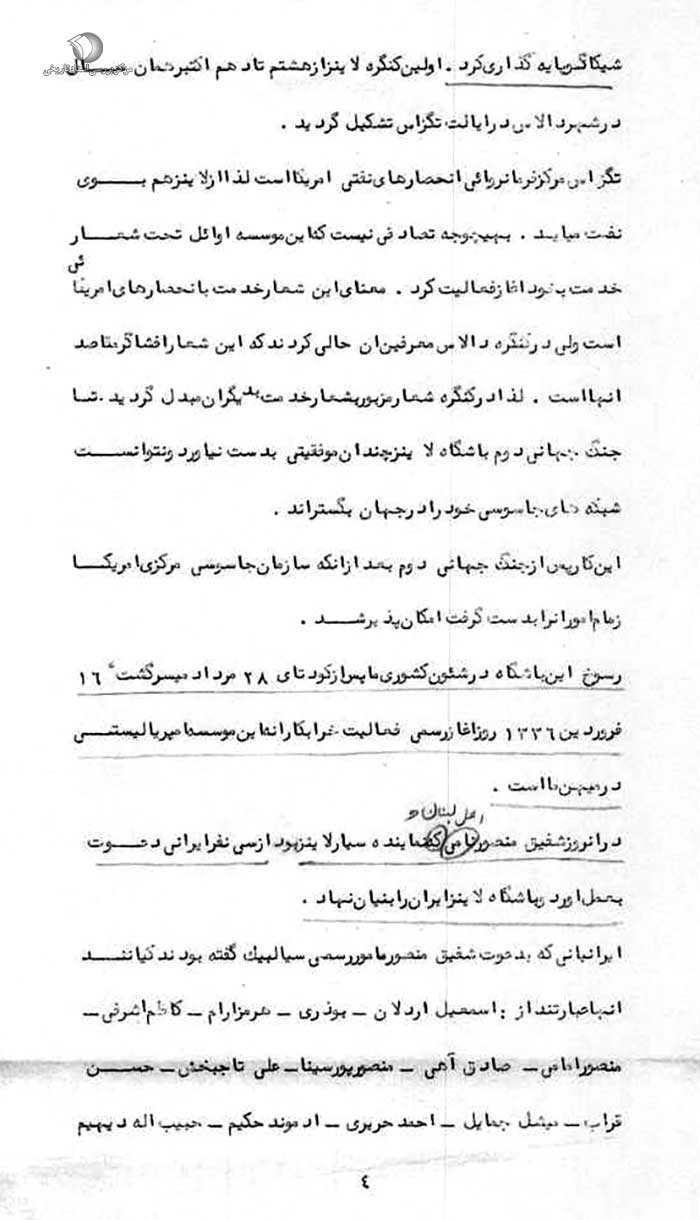 مرکز بررسی اسناد تاریخی
شیکاگو پایه گذاری کرد . اولین کنگره لاینز از هشتم تا دهم اکتبر همان ســال
در شهر دالاس در ایالت تگزاس تشکیل گردید .
تگزاس مرکز فرمانروائی انحصارهای نفتی امریکا است لذا از لاینز هم بــوی
نفت میاید . بهیچوجه تصادفی نیست که این موسسه اوائل تحت شعــار
خدمت بخود اغاز فعالیت کرد . معنای این شعار خدمت بانحصارهای امریکائی
است ولی در کنگره دالاس معرفین ان حالی کردند که این شعار افشاگر مقاصد
انها است . لذا در کنگره شعار مزبور بشعار خدمت بدیگران مبدل گردید . تــا
جنگ جهانی دوم باشگاه لاینز چندان موفقیتی بدست نیاورد ونتوانســت
شبکه های جاسوسی خود را در جهان بگستراند .
این کار پس از جنگ جهانی دوم بعد از انکه سازمان جاسوسی مرکزی امریکــا
زمام امور انرا بدست گرفت امکان پذیر شــد .
رسوخ این باشگاه در شئون کشوری ما پس از کودتای ۲۸ مرداد میسر گشت ۱۶
فروردین ۱۳۳۶ روز اغاز رسمی فعالیت خرابکارانه این موسسه امپریالیستــی
در میهن ما است .
اهل لبنان و
در انروز شفیق منصور نامی که نماینده سیار لاینز بود از سی نفر ایرانی دعــوت
بعمل اورد و باشگاه لاینز ایران را بنیان نهاد .
ایرانیانی که بدعوت شفیق منصور مامور رسمی سیا لبیک گفته بودند کیاننــد
انها عبارتند از : اسمعیل اردلان ــ بوذری ــ هرمز ارام ــ کاظم اشرفی ــ
منصور امامی ــ صادق آهی ــ منصور پورسینا ــ علی تاجبخش ــ حســن
قراب ــ میشل جمایل ــ احمد حریری ــ ادموند حکیم ــ حبیب اله دیهیم
٤